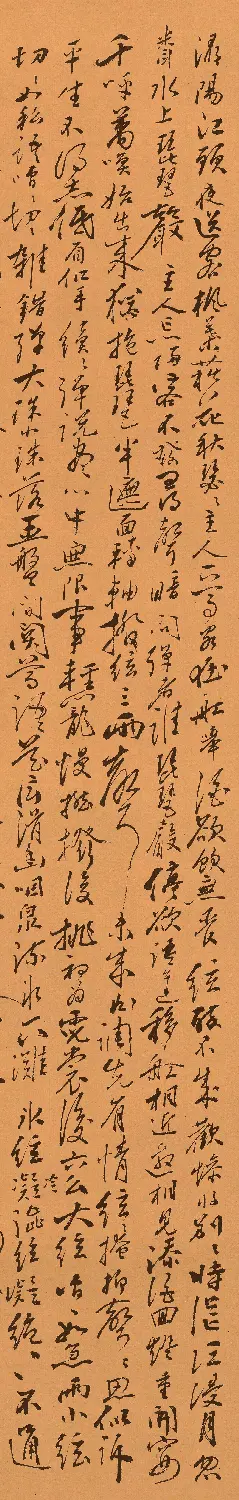 潯陽江頭夜送客楓葉荻花秋瑟瑟主人下馬客在船舉酒欲飲無管絃醉不成歡慘將別別時茫茫江浸月忽
聞水上琵琶聲主人忘歸客不發尋聲暗問彈者誰琵琶聲停欲語遲移船相近邀相見添酒回燈重開宴
千呼萬喚始出來猶抱琵琶半遮面轉軸撥絃三兩聲未成曲調先有情絃絃掩抑聲聲思似訴
平生不得志低眉信手續續彈說盡心中無限事輕攏慢撚撥復挑初為霓裳後六么大絃嘈嘈如急雨小絃
切切如私語嘈嘈切切雜錯彈大珠小珠落玉盤間關鶯語花底滑幽咽泉流冰下灘冰絃冷澀絃凝絕凝絕不通